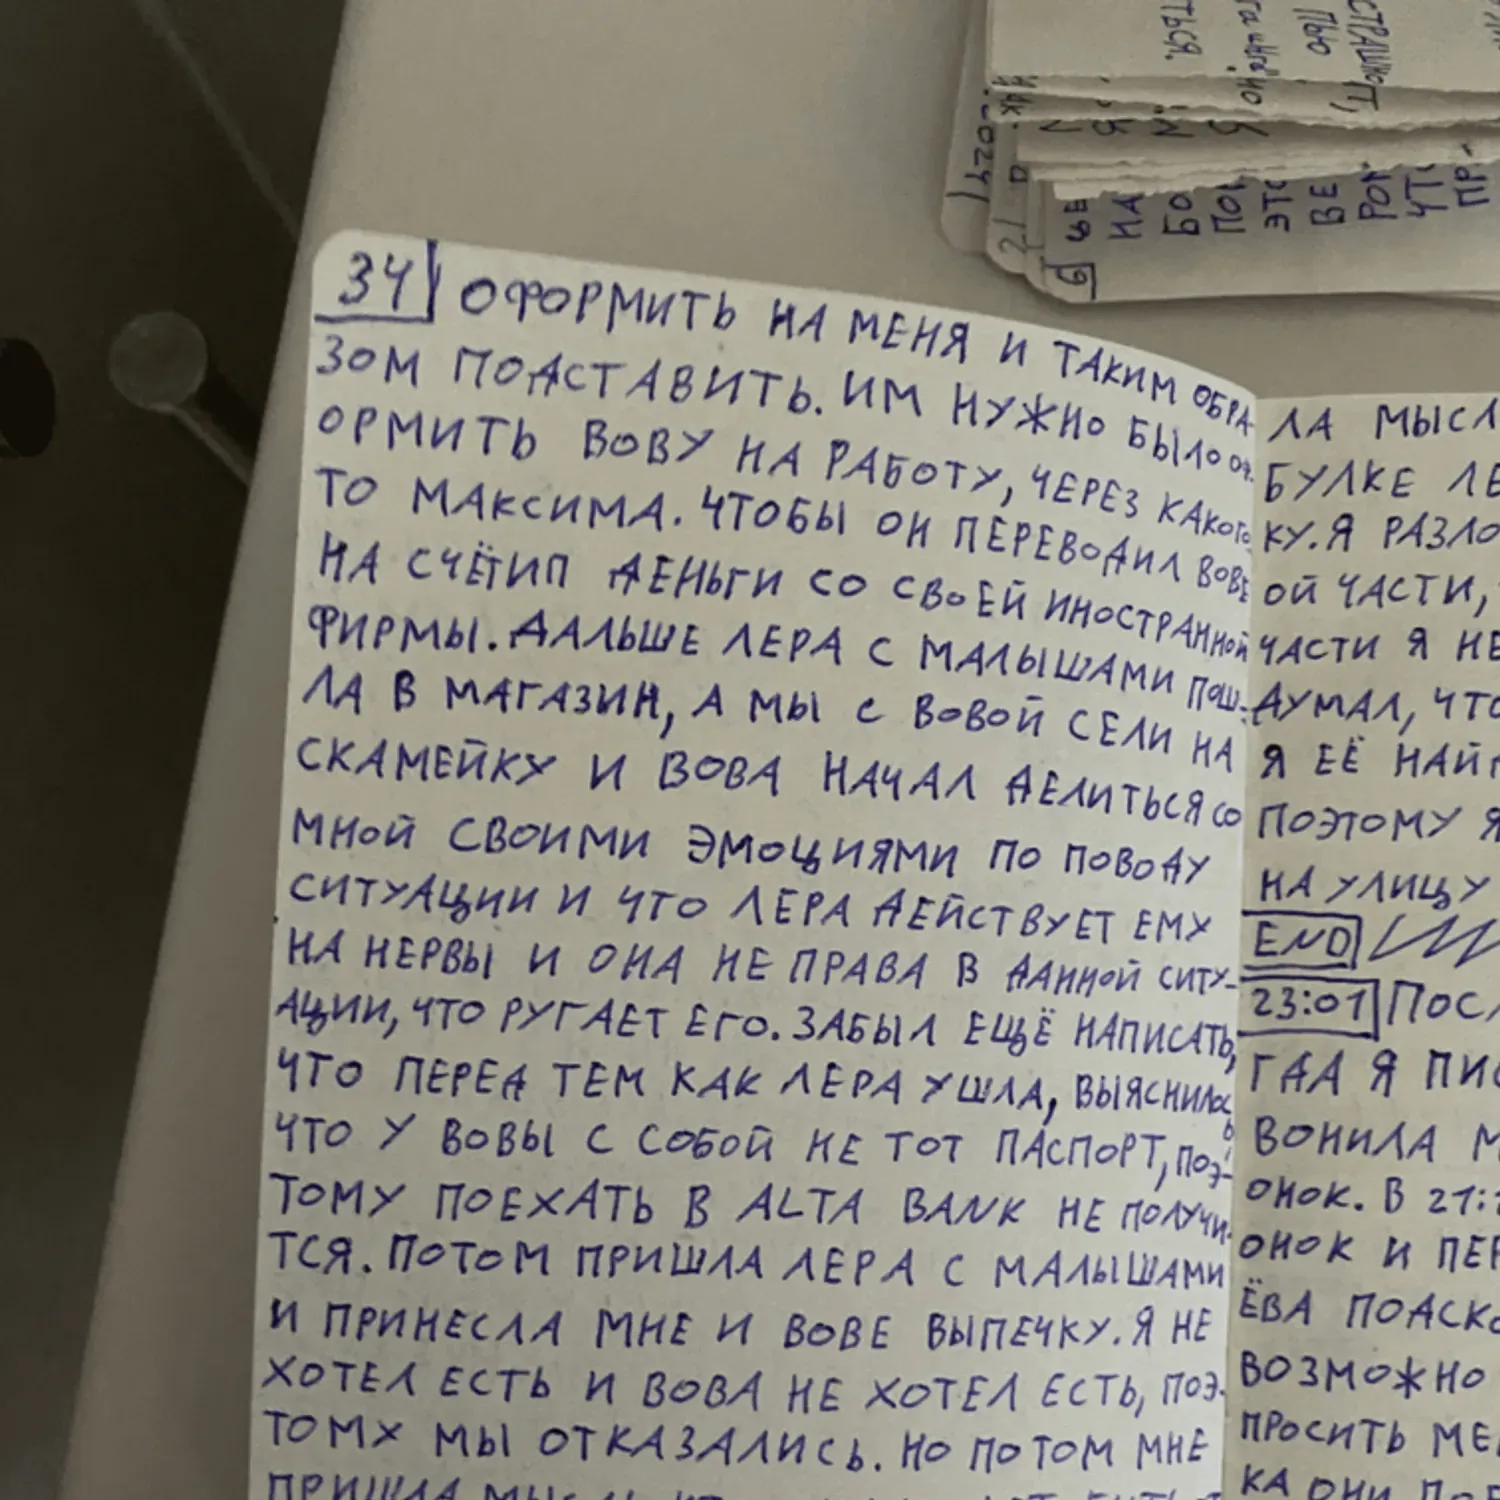 34 ОФОРМИТЬ НА МЕНЯ И ТАКИМ ОБРА-
ЗОМ ПОДСТАВИТЬ. ИМ НУЖНО БЫЛО ОФ-
ОРМИТЬ ВОВУ НА РАБОТУ, ЧЕРЕЗ КАКОГО-
ТО МАКСИМА. ЧТОБЫ ОН ПЕРЕВОДИЛ ВОВЕ
НА СЧЁТ ИП ДЕНЬГИ СО СВОЕЙ ИНОСТРАННОЙ
ФИРМЫ. ДАЛЬШЕ ЛЕРА С МАЛЫШАМИ ПОШ-
ЛА В МАГАЗИН, А МЫ С ВОВОЙ СЕЛИ НА
СКАМЕЙКУ И ВОВА НАЧАЛ ДЕЛИТЬСЯ СО
МНОЙ СВОИМИ ЭМОЦИЯМИ ПО ПОВОДУ
СИТУАЦИИ И ЧТО ЛЕРА ДЕЙСТВУЕТ ЕМУ
НА НЕРВЫ И ОНА НЕ ПРАВА В ДАННОЙ СИТУ-
АЦИИ, ЧТО РУГАЕТ ЕГО. ЗАБЫЛ ЕЩЁ НАПИСАТЬ,
ЧТО ПЕРЕД ТЕМ КАК ЛЕРА УШЛА, ВЫЯСНИЛОСЬ
ЧТО У ВОВЫ С СОБОЙ НЕ ТОТ ПАСПОРТ, ПОЭ-
ТОМУ ПОЕХАТЬ В ALTA BANK НЕ ПОЛУЧИ-
ТСЯ. ПОТОМ ПРИШЛА ЛЕРА С МАЛЫШАМИ
И ПРИНЕСЛА МНЕ И ВОВЕ ВЫПЕЧКУ. Я НЕ
ХОТЕЛ ЕСТЬ И ВОВА НЕ ХОТЕЛ ЕСТЬ, ПОЭ-
ТОМУ МЫ ОТКАЗАЛИСЬ. НО ПОТОМ МНЕ
ПРИШЛА
ЛА МЫСЛ
БУЛКЕ ЛЕ
КУ. Я РАЗЛО
ОЙ ЧАСТИ,
ЧАСТИ Я НЕ
ДУМАЛ, ЧТО
Я ЕЁ НАЙ
ПОЭТОМУ Я
НА УЛИЦУ
END
23:01 ПОСЛ
ГДА Я ПИС
ВОНИЛА М
ОНОК. В 21:
ОНОК И ПЕР
ЁВА ПОДСКО
ВОЗМОЖНО
ПРОСИТЬ МЕ
КА ОНИ
6